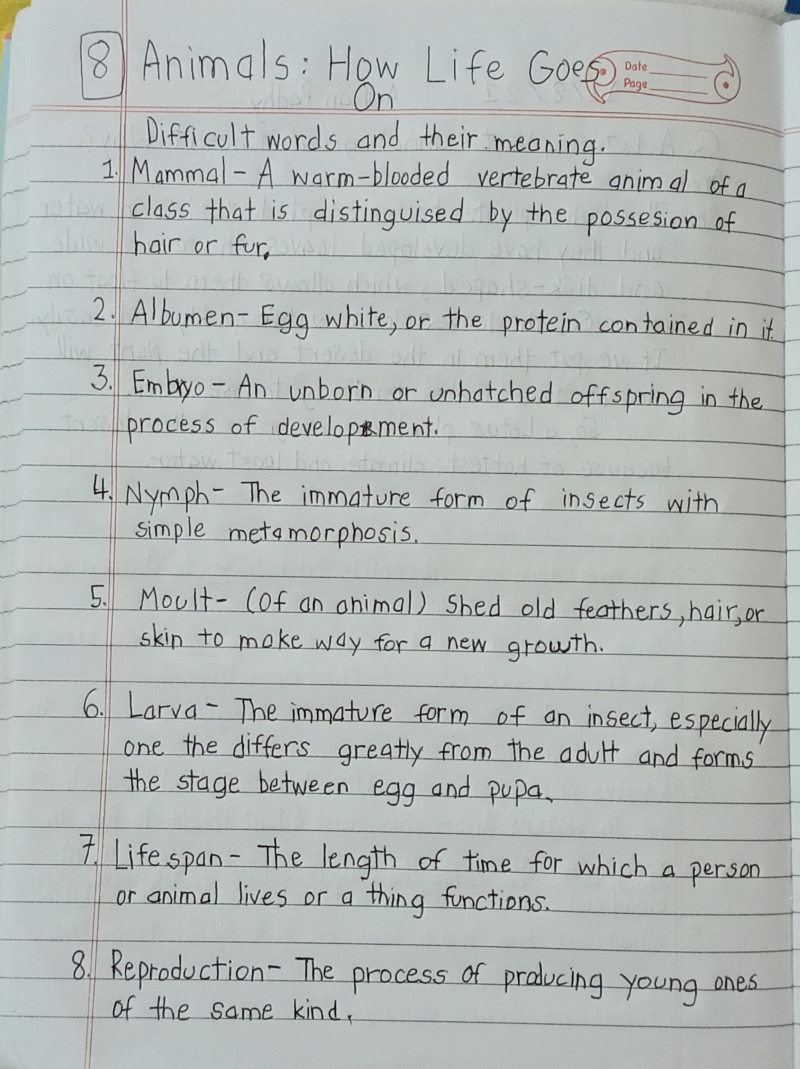 8 Animals: How Life Goes
On
Date
Page
Difficult words and their meaning.
1. Mammal - A warm-blooded vertebrate animal of a
class that is distinguised by the possesion of
hair or fur.
2. Albumen - Egg white, or the protein contained in it.
3. Embryo - An unborn or unhatched offspring in the
process of development.
4. Nymph - The immature form of insects with
simple metamorphosis.
5. Moult - (Of an animal) Shed old feathers, hair, or
skin to make way for a new growth.
6. Larva - The immature form of an insect, especially
one the differs greatly from the adult and forms
the stage between egg and pupa.
7. Life span - The length of time for which a person
or animal lives or a thing functions.
8. Reproduction - The process of producing young ones
of the same kind.